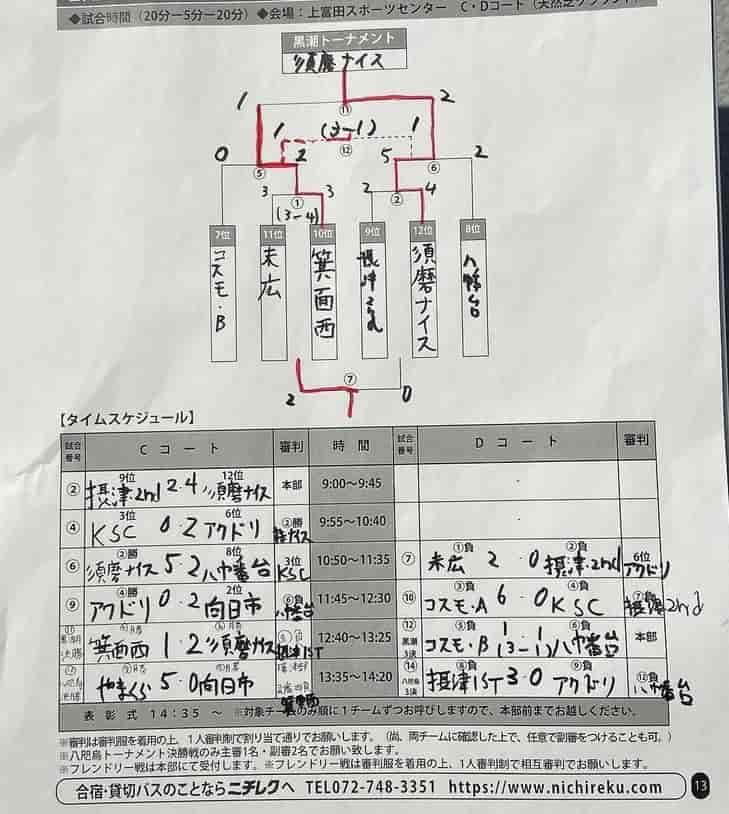 ◆試合時間（20分ー5分ー20分）◆会場：上富田スポーツセンター　C・Dコート（天然芝グラウンド）
黒潮トーナメント
須磨ナイス
1 ⑪ 2
1 (3-1) 1
⑫
0 ⑤ 2 5 ⑥ 2
3 ① 3 2 ② 4
(3-4)
7位 11位 10位 9位 12位 8位
コスモ・B 末広 箕面西 摂津2nd 須磨ナイス 八幡台
⑦
2 0
【タイムスケジュール】
試合番号 Cコート 審判 時間 試合番号 Dコート 審判
② 9位 摂津2nd 2・4 12位 須磨ナイス 本部 9:00～9:45 ・
④ 3位 KSC 0 2 6位 アクドリ ②勝 須磨ナイス 9:55～10:40 ・
⑥ ②勝 須磨ナイス 5・2 8位 八幡台 3位 KSC 10:50～11:35 ⑦ ①負 末広 2・0 ②負 摂津2nd 6位 アクドリ
⑨ ④勝 アクドリ 0・2 2位 向日市 ⑥負 八幡台 11:45～12:30 ⑩ ③負 コスモ・A 6・0 ④負 KSC ⑦負 摂津2nd
⑪ 黒潮決勝 ⑤勝 箕面西 1・2 ⑥勝 須磨ナイス 摂津1ST 12:40～13:25 ⑫ 黒潮3決 ⑤負 コスモ・B 1 1 (3-1) ⑥負 八幡台 本部
やまくぐ 5・0 向日市 箕面西 13:35～14:20 ⑭ 八咫烏3決 ⑧負 摂津1ST 3・0 ⑨負 アクドリ ⑫負 八幡台
表彰式 14:35 ～ ※対象チームのみ順に１チームずつお呼びしますので、本部前までお越しください。
※審判は審判服を着用の上、1人審判制で割り当て通りでお願いします。（尚、両チームに確認した上で、任意で副審をつけることも可。）
※八咫烏トーナメント決勝戦のみ主審1名・副審2名でお願い致します。
※フレンドリー戦は本部にて受付します。※フレンドリー戦は審判服を着用の上、1人審判制で相互審判でお願いします。
合宿・貸切バスのことなら ニチレクへ TEL072-748-3351 https://www.nichireku.com
13